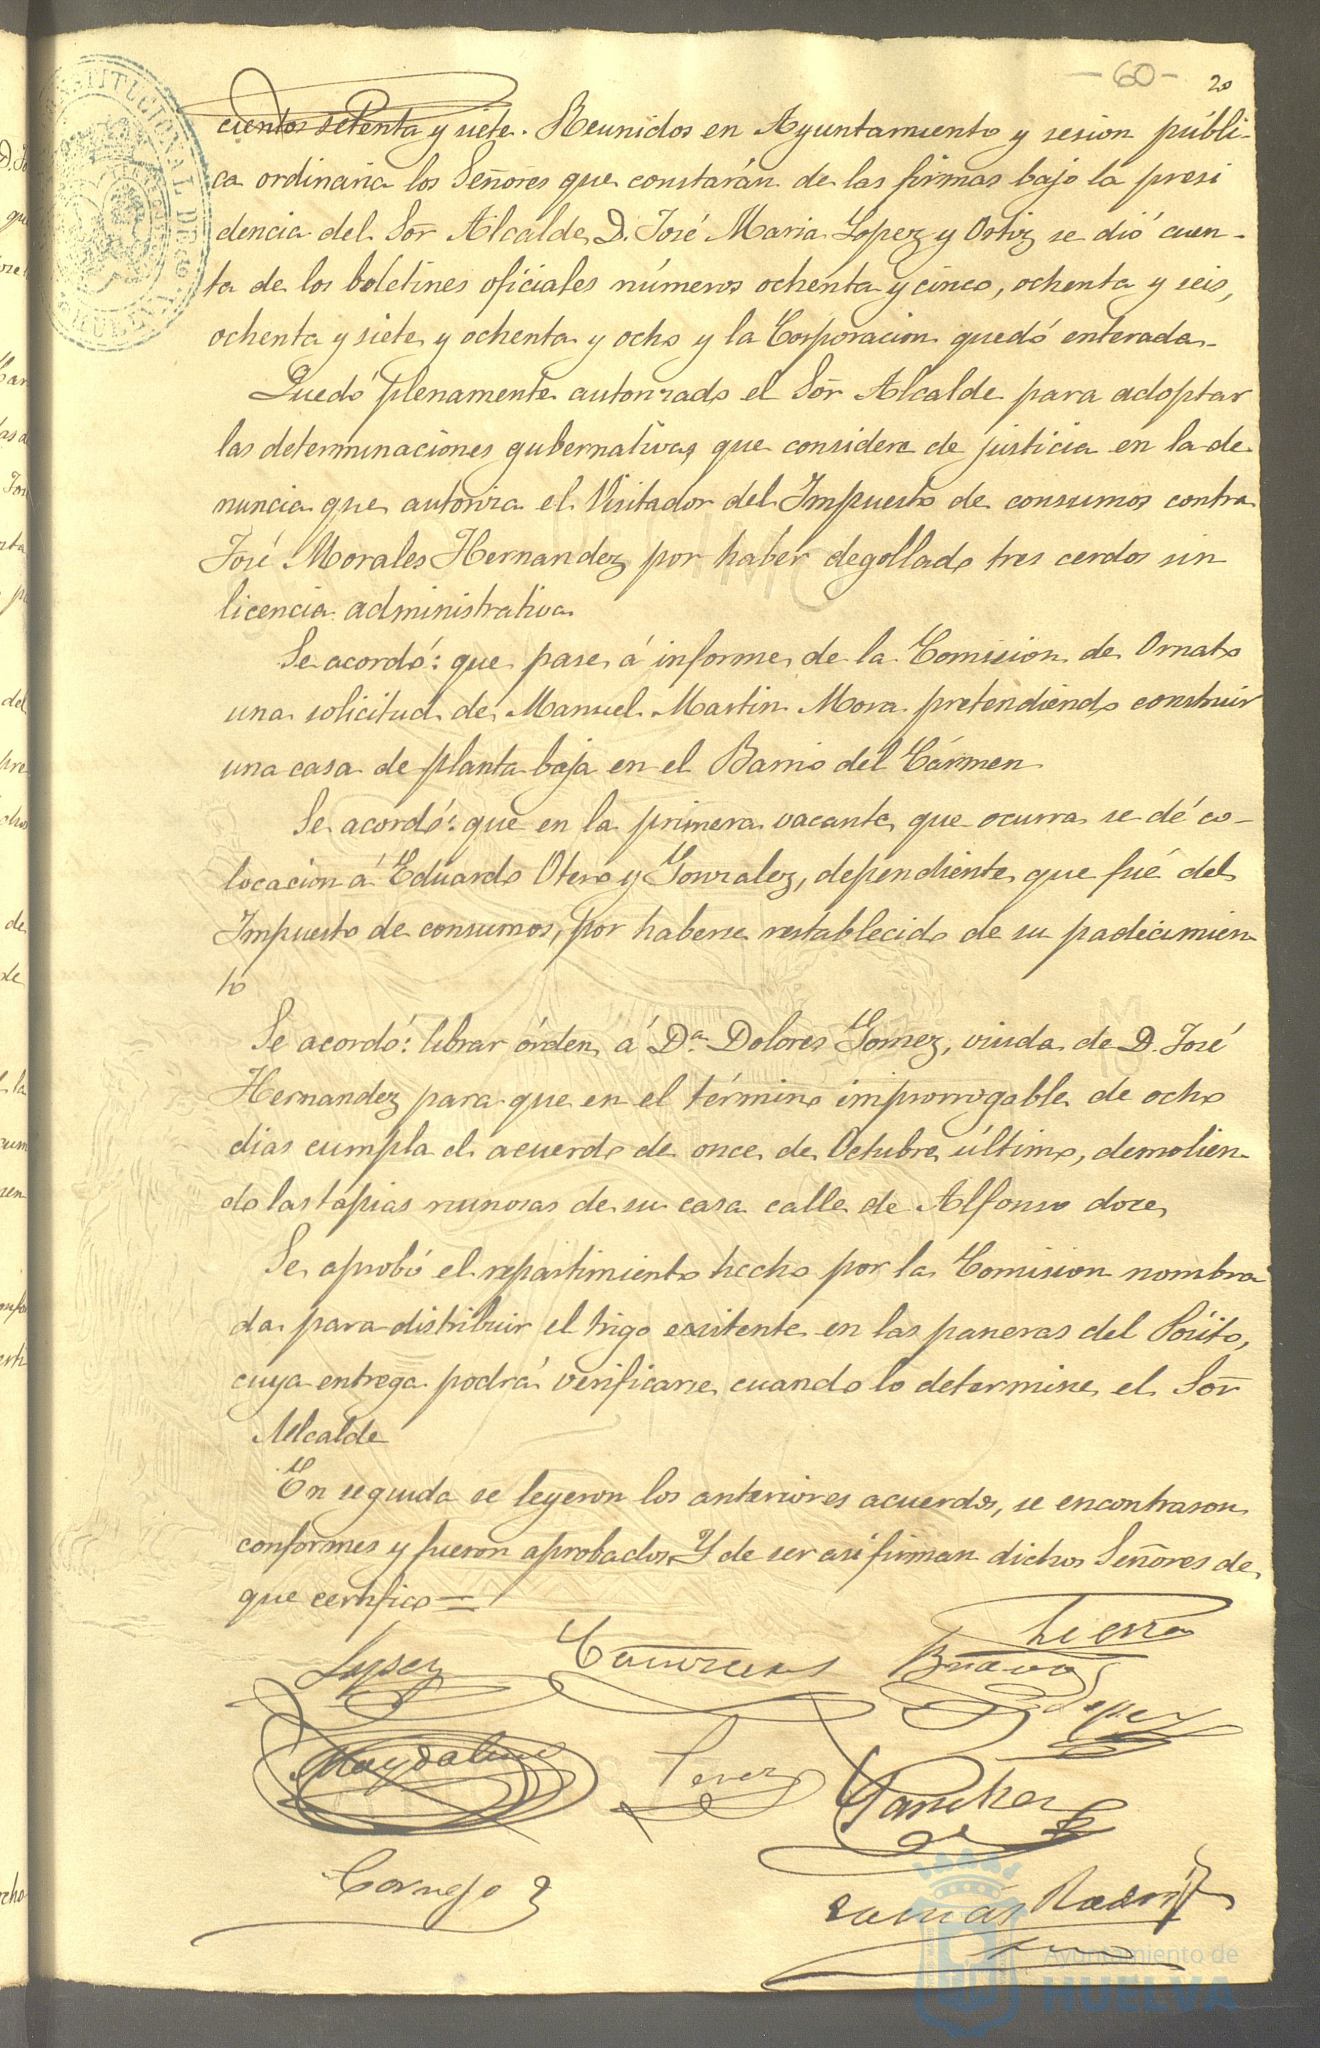 -60-
20
cientos setenta y siete. Reunidos en Ayuntamiento y sesion públi-
ca ordinaria los Señores que constarán de las firmas bajo la presi
dencia del Sor Alcalde D. José Maria Lopez y Ortiz se dió cuen-
ta de los boletines oficiales números ochenta y cinco, ochenta y seis,
ochenta y siete y ochenta y ocho y la Corporacion quedó enterada.
Quedó plenamente autorizado el Sor Alcalde para adoptar
las determinaciones gubernativas que considere de justicia en la de
nuncia que autoriza el Visitador del Impuesto de consumos contra
José Morales Hernandez por haber degollado tres cerdos sin
licencia administrativa
Se acordó: que pase á informe de la Comision de Ornato
una solicitud de Manuel Martin Mora pretendiendo construir
una casa de planta baja en el Barrio del Cármen
Se acordó: que en la primera vacante que ocurra se dé co-
locacion á Eduardo Otero y Gonzalez, dependiente que fué del
Impuesto de consumos, por haberse restablecido de su padecimien
to
Se acordó: librar órden á Da. Dolores Gomez, viuda de D. José
Hernandez para que en el término improrrogable de ocho
dias cumpla el acuerdo de once de Octubre último, demolien-
do las tapias ruinosas de su casa calle de Alfonso doce
Se aprobó el repartimiento hecho por la Comision nombra
da para distribuir el trigo existente en las paneras del Pósito,
cuya entrega podrá verificarse cuando lo determine el Sor
Alcalde
En seguida se leyeron los anteriores acuerdos, se encontraron
conformes y fueron aprobados. Y de ser asi firman dichos Señores de
que certifico=
Lopez
Contreras
Bueno
Tierra
Lopez
Magdaleno
Perez
Sanchez
Cornejo
Tomás
Ayuntamiento de
HUELVA